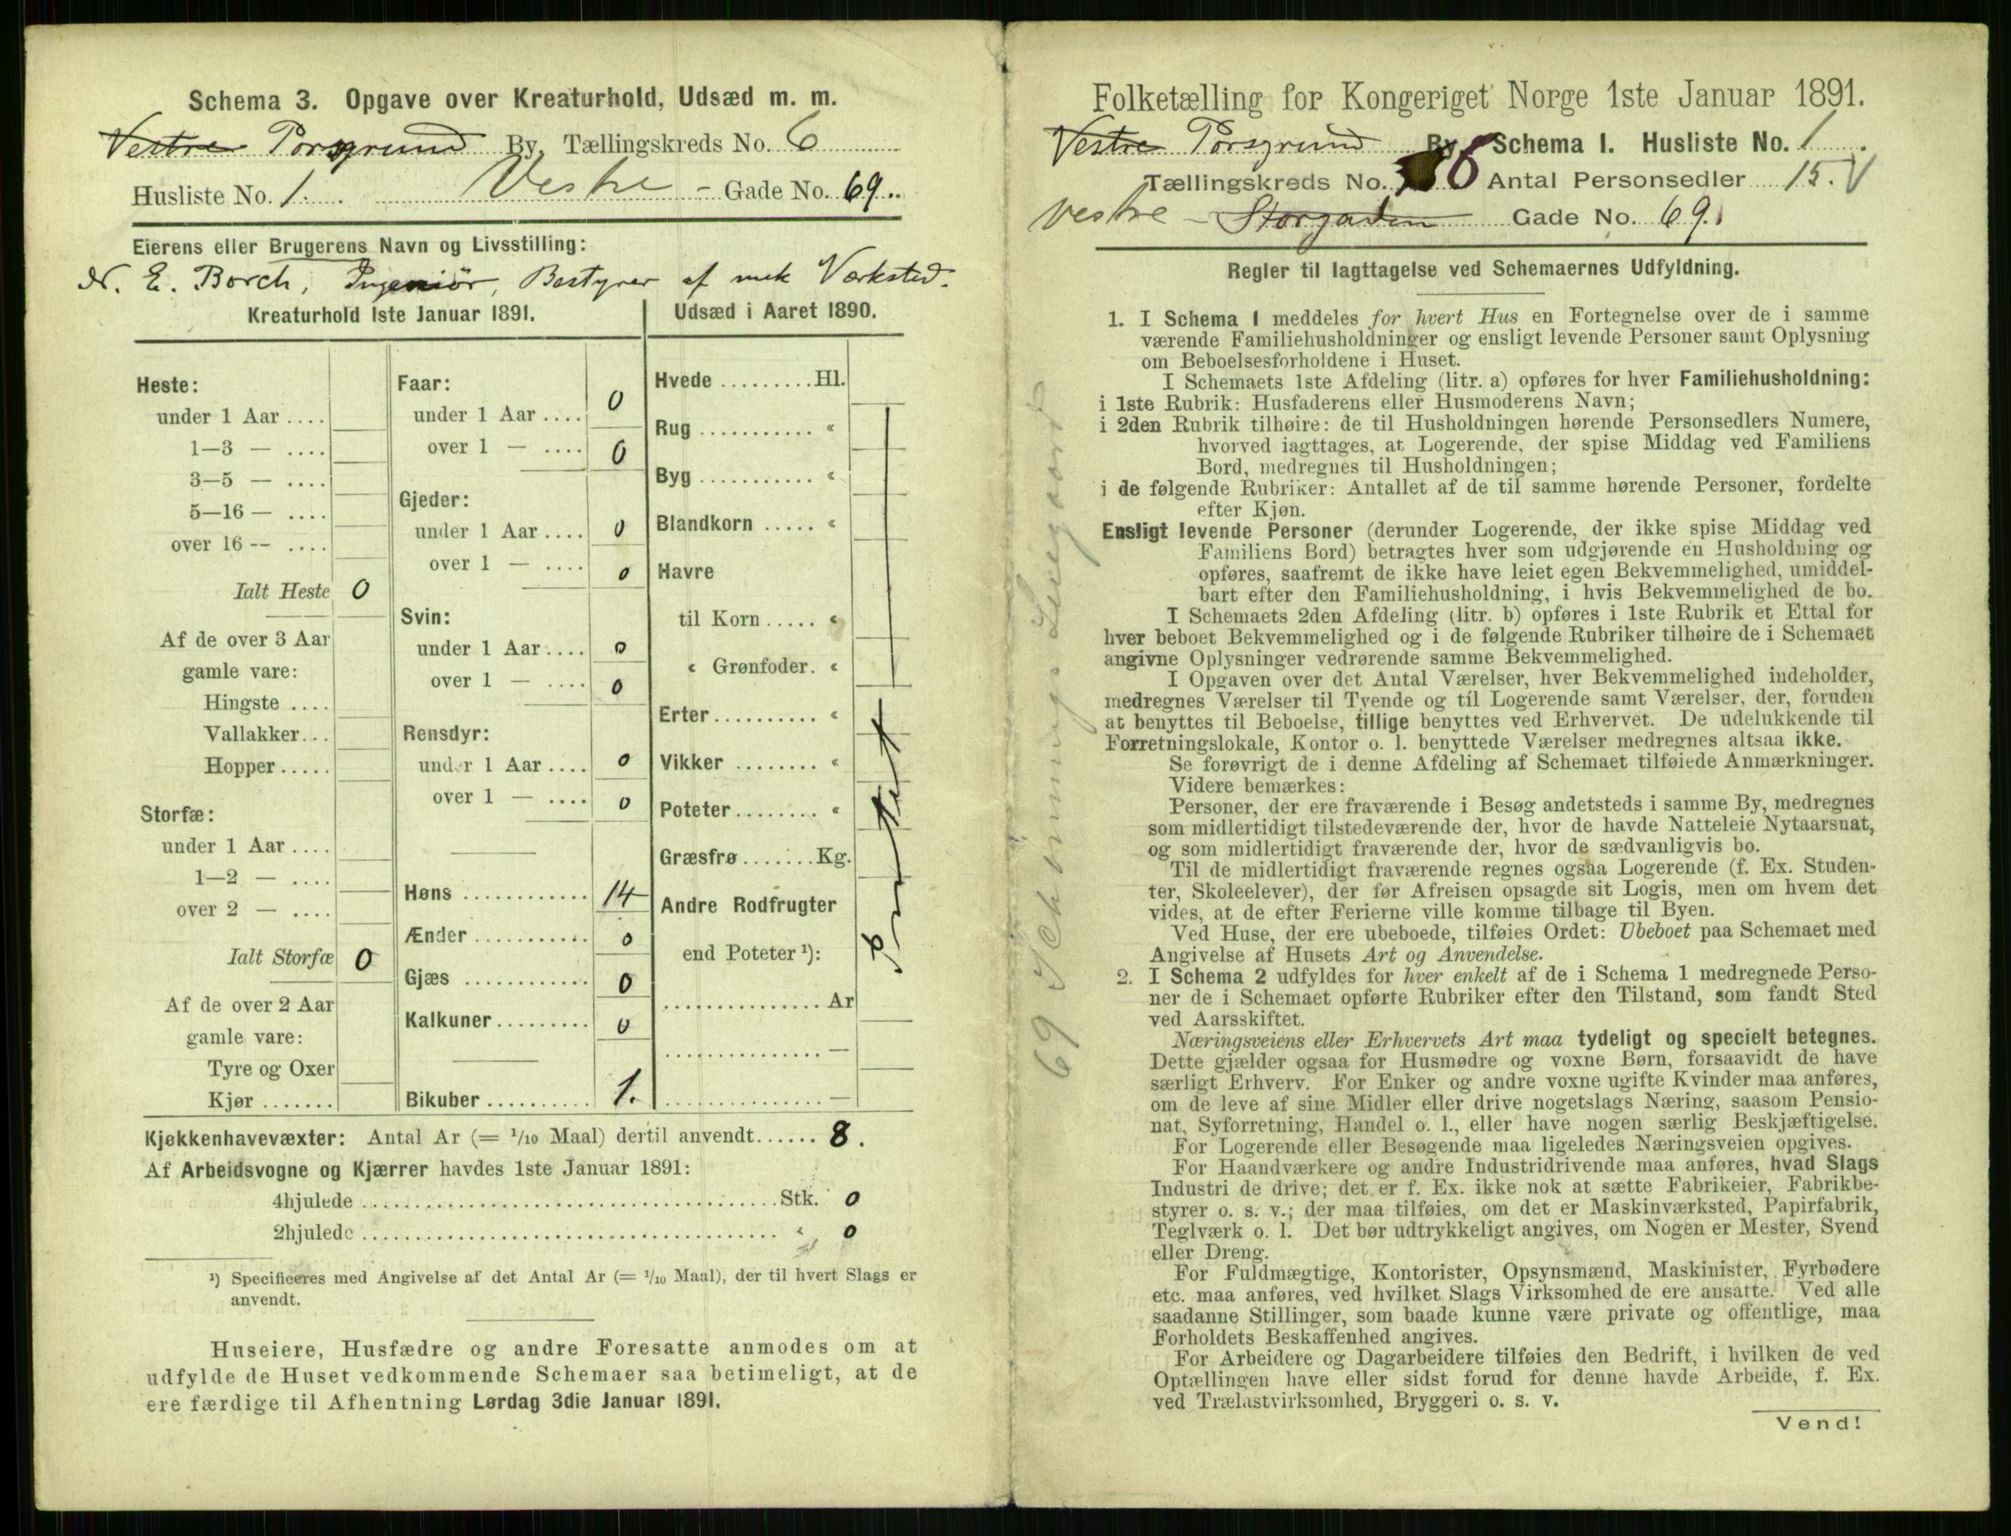 Schema 3. Opgave over Kreaturhold, Udsæd m. m.
Vestre Porsgrund By, Tællingskreds No. 6
Husliste No. 1. Vestre - Gade No. 69.
Eierens eller Brugerens Navn og Livsstilling:
N. E. Borch, Ingeniør, Bestyrer af mek Værksted.
Kreaturhold 1ste Januar 1891.
Heste:
under 1 Aar ....
1—3 — ....
3—5 — ....
5—16 — ....
over 16 — ....
Ialt Heste 0
Af de over 3 Aar
gamle vare:
Hingste ....
Vallakker...
Hopper.....
Storfæ:
under 1 Aar ....
1—2 — ....
over 2 — ....
Ialt Storfæ 0
Af de over 2 Aar
gamle vare:
Tyre og Oxer
Kjør .......
Faar:
under 1 Aar .... 0
over 1 — .... 0
Gjeder:
under 1 Aar .... 0
over 1 — .... 0
Svin:
under 1 Aar .... 0
over 1 — .... 0
Rensdyr:
under 1 Aar .... 0
over 1 — .... 0
Høns ............ 14
Ænder ........... 0
Gjæs ............ 0
Kalkuner ......... 0
Bikuber .......... 1.
Udsæd i Aaret 1890.
Hvede .........Hl.
Rug ........... "
Byg ........... "
Blandkorn ..... "
Havre
til Korn ..... "
" Grønfoder. "
Erter .......... "
Vikker ........ "
Poteter ........ "
Græsfrø .......Kg.
Andre Rodfrugter
end Poteter ¹):
............... Ar
............... —
............... —
Kjøkkenhavevæxter: Antal Ar (= 1/10 Maal) dertil anvendt...... 8.
Af Arbeidsvogne og Kjærrer havdes 1ste Januar 1891:
4hjulede ........................................ Stk. 0
2hjulede ........................................ " 0
¹) Specificeres med Angivelse af det Antal Ar (= 1/10 Maal), der til hvert Slags er
anvendt.
Huseiere, Husfædre og andre Foresatte anmodes om at
udfylde de Huset vedkommende Schemaer saa betimeligt, at de
ere færdige til Afhentning Lørdag 3die Januar 1891.
Folketælling for Kongeriget Norge 1ste Januar 1891.
Vestre Porsgrund By. Schema I. Husliste No. 1.
Tællingskreds No. 6 Antal Personsedler 15. V
Vestre - Storgaden Gade No. 69.
Regler til Iagttagelse ved Schemaernes Udfyldning.
1. I Schema 1 meddeles for hvert Hus en Fortegnelse over de i samme
værende Familiehusholdninger og ensligt levende Personer samt Oplysning
om Beboelsesforholdene i Huset.
I Schemaets 1ste Afdeling (litr. a) opføres for hver Familiehusholdning:
i 1ste Rubrik: Husfaderens eller Husmoderens Navn;
i 2den Rubrik tilhøire: de til Husholdningen hørende Personsedlers Numere,
hvorved iagttages, at Logerende, der spise Middag ved Familiens
Bord, medregnes til Husholdningen;
i de følgende Rubriker: Antallet af de til samme hørende Personer, fordelte
efter Kjøn.
Ensligt levende Personer (derunder Logerende, der ikke spise Middag ved
Familiens Bord) betragtes hver som udgjørende en Husholdning og
opføres, saafremt de ikke have leiet egen Bekvemmelighed, umiddel-
bart efter den Familiehusholdning, i hvis Bekvemmelighed de bo.
I Schemaets 2den Afdeling (litr. b) opføres i 1ste Rubrik et Ettal for
hver beboet Bekvemmelighed og i de følgende Rubriker tilhøire de i Schemaet
angivne Oplysninger vedrørende samme Bekvemmelighed.
I Opgaven over det Antal Værelser, hver Bekvemmelighed indeholder,
medregnes Værelser til Tyende og til Logerende samt Værelser, der, foruden
at benyttes til Beboelse, tillige benyttes ved Erhvervet. De udelukkende til
Forretningslokale, Kontor o. l. benyttede Værelser medregnes altsaa ikke.
Se forøvrigt de i denne Afdeling af Schemaet tilføiede Anmærkninger.
Videre bemærkes:
Personer, der ere fraværende i Besøg andetsteds i samme By, medregnes
som midlertidigt tilstedeværende der, hvor de havde Natteleie Nytaarsnat,
og som midlertidigt fraværende der, hvor de sædvanligvis bo.
Til de midlertidigt fraværende regnes ogsaa Logerende (f. Ex. Studen-
ter, Skoleelever), der før Afreisen opsagde sit Logis, men om hvem det
vides, at de efter Ferierne ville komme tilbage til Byen.
Ved Huse, der ere ubeboede, tilføies Ordet: Ubeboet paa Schemaet med
Angivelse af Husets Art og Anvendelse.
2. I Schema 2 udfyldes for hver enkelt af de i Schema 1 medregnede Perso-
ner de i Schemaet opførte Rubriker efter den Tilstand, som fandt Sted
ved Aarsskiftet.
Næringsveiens eller Erhvervets Art maa tydeligt og specielt betegnes.
Dette gjælder ogsaa for Husmødre og voxne Børn, forsaavidt de have
særligt Erhverv. For Enker og andre voxne ugifte Kvinder maa anføres,
om de leve af sine Midler eller drive nogetslags Næring, saasom Pensio-
nat, Syforretning, Handel o. l., eller have nogen særlig Beskjæftigelse.
For Logerende eller Besøgende maa ligeledes Næringsveien opgives.
For Haandværkere og andre Industridrivende maa anføres, hvad Slags
Industri de drive; det er f. Ex. ikke nok at sætte Fabrikeier, Fabrikbe-
styrer o. s. v.; der maa tilføies, om det er Maskinværksted, Papirfabrik,
Teglværk o. l. Det bør udtrykkeligt angives, om Nogen er Mester, Svend
eller Dreng.
For Fuldmægtige, Kontorister, Opsynsmænd, Maskinister, Fyrbødere
etc. maa anføres, ved hvilket Slags Virksomhed de ere ansatte. Ved alle
saadanne Stillinger, som baade kunne være private og offentlige, maa
Forholdets Beskaffenhed angives.
For Arbeidere og Dagarbeidere tilføies den Bedrift, i hvilken de ved
Optællingen have eller sidst forud for denne havde Arbeide, f. Ex.
ved Trælastvirksomhed, Bryggeri o. s. v.
Vend!
69